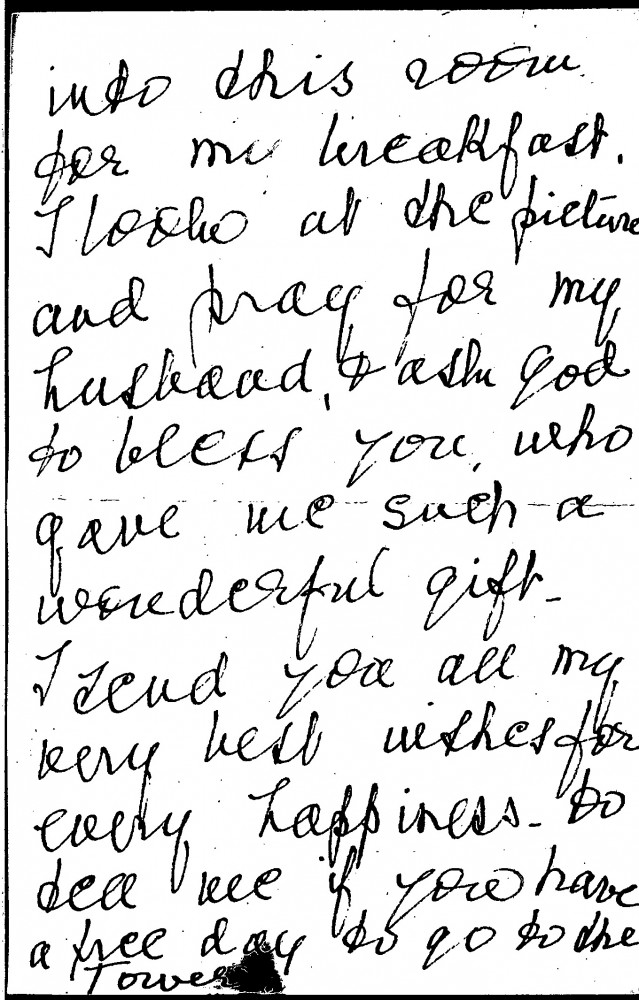 into this room
for my breakfast.
I look at the picture
and pray for my
husband, & ask God
to bless you, who
gave me such a
wonderful gift.
I send you all my
very best wishes for
every happiness. Do
tell me if you have
a free day to go to the
Tower